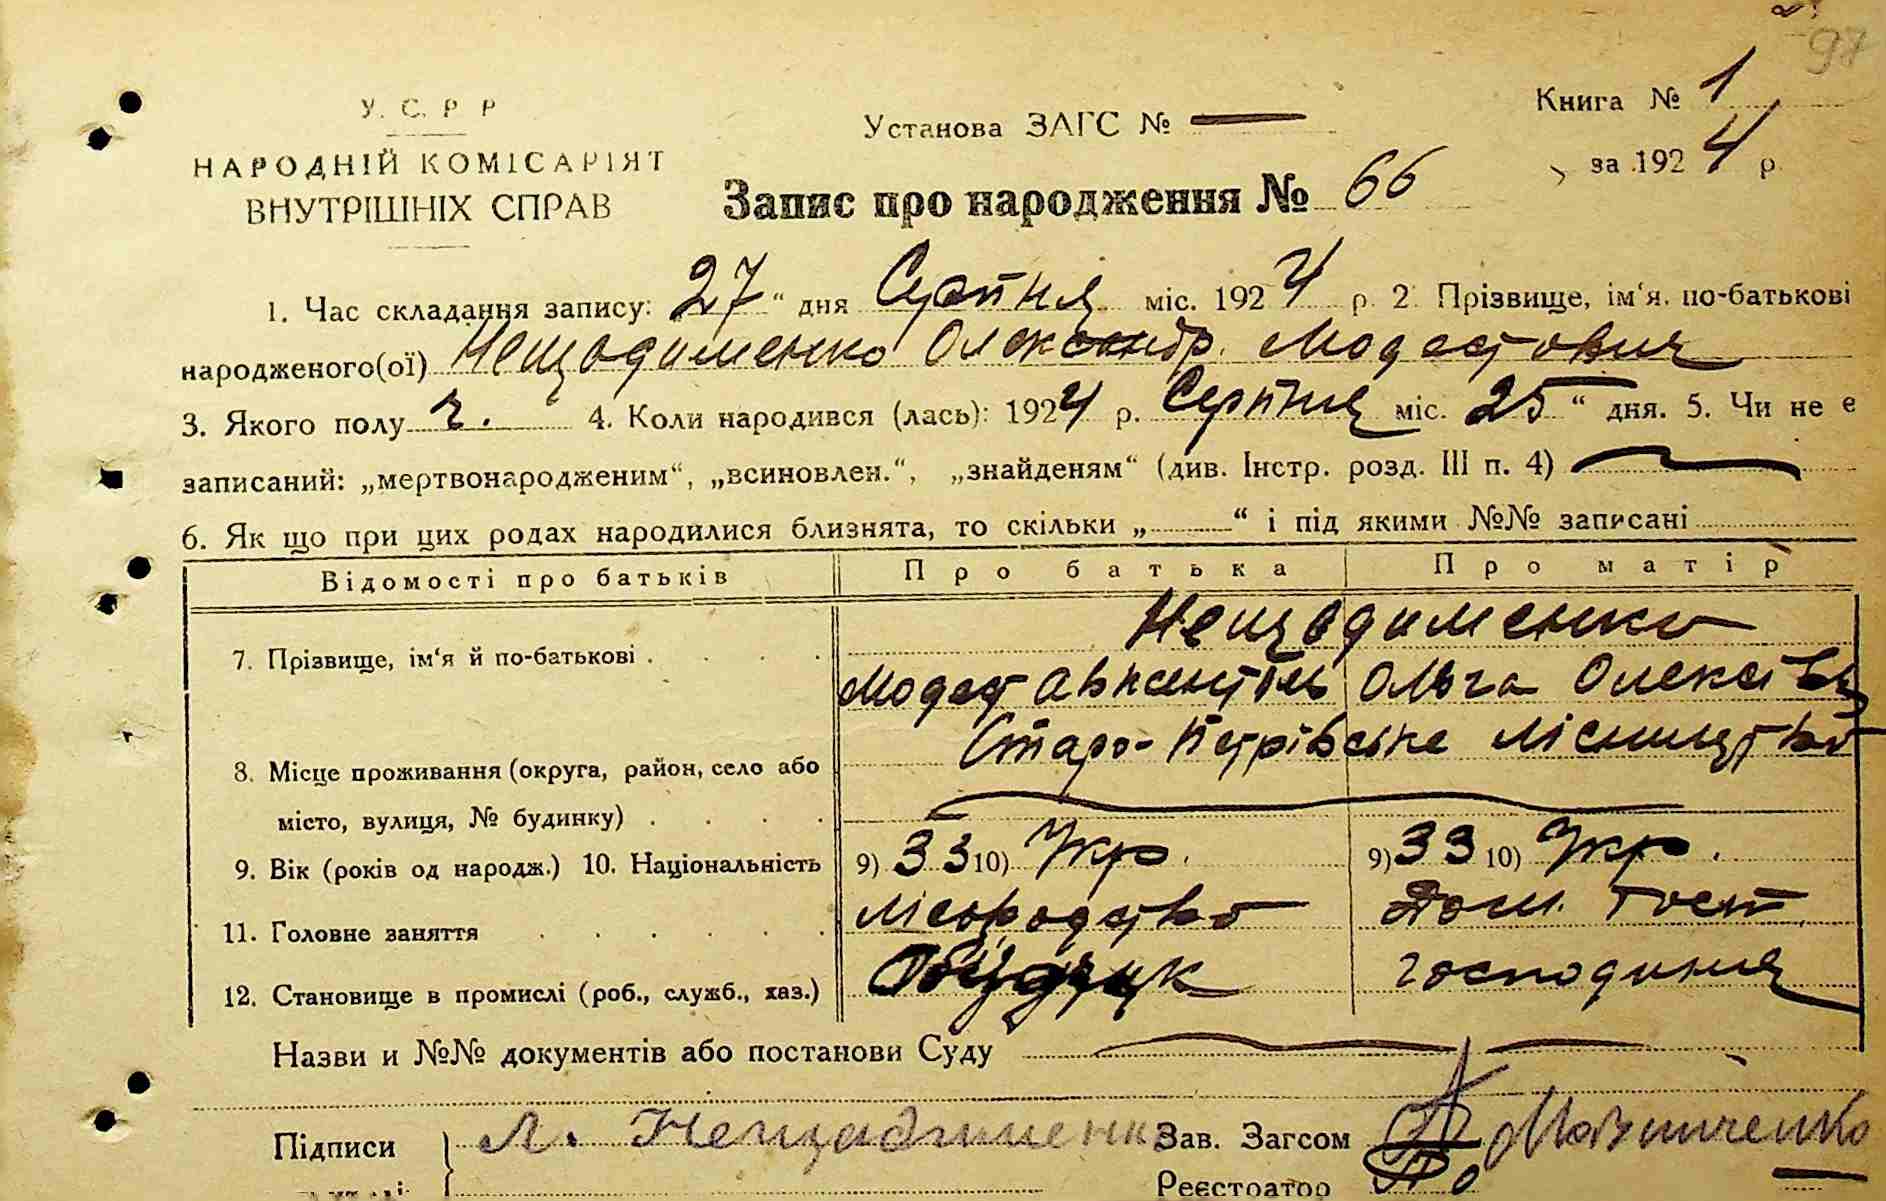 97
У. С. Р. Р
Книга № 1
Установа ЗАГС № —
НАРОДНІЙ КОМІСАРІЯТ
за 1924 р.
ВНУТРІШНІХ СПРАВ
Запис про народження № 66
1. Час складання запису: „27“ дня Серпня міс. 1924 р. 2. Прізвище, ім‘я, по-батькові
народженого(ої) Нещодименко Олександр. Модестович
3. Якого полу ч. 4. Коли народився (лась): 1924 р. Серпня міс. „25“ дня. 5. Чи не є
записаний: „мертвонародженим“, „всиновлен.“, „знайденям“ (див. Інстр. розд. III п. 4) —
6. Як що при цих родах народилися близнята, то скільки „ “ і під якими №№ записані
Відомості про батьків Про батька Про матір
Нещодименко
7. Прізвище, ім‘я й по-батькові
Модест Ольга Олексіїв
Старо-Петрівське лісництво
8. Місце проживання (округа, район, село або
місто, вулиця, № будинку)
9. Вік (років од народж.) 10. Національність 9) 33 10) Укр. 9) 33 10) Укр.
11. Головне заняття Дом. Госп
12. Становище в промислі (роб., служб., хаз.) господиня
Назви и №№ документів або постанови Суду
Підписи М. Нещадименко Зав. Загсом
Реєстратор